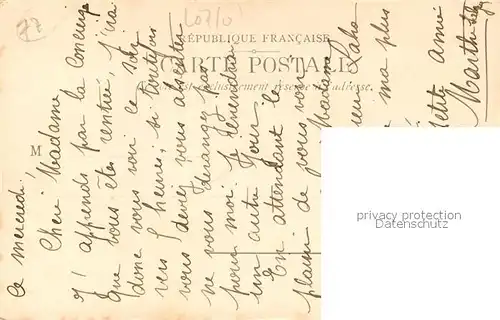 77
RÉPUBLIQUE FRANÇAISE
CARTE POSTALE
exclusivement réservé à l'adresse.
M
Ce mercredi,
Chère Madame
J'apprends par la Concierge
que vous êtes rentrée, j'irai
donc vous voir ce soir
vers heures, si toutefois
vous devez vous absenter
ne vous dérangez pas
pour moi je reviendrai
un autre jour.
En attendant le
plaisir de vous voir
Madame
ma plus
Petite amie
Marthe
privacy protection
www.ansichtskarten-center.de